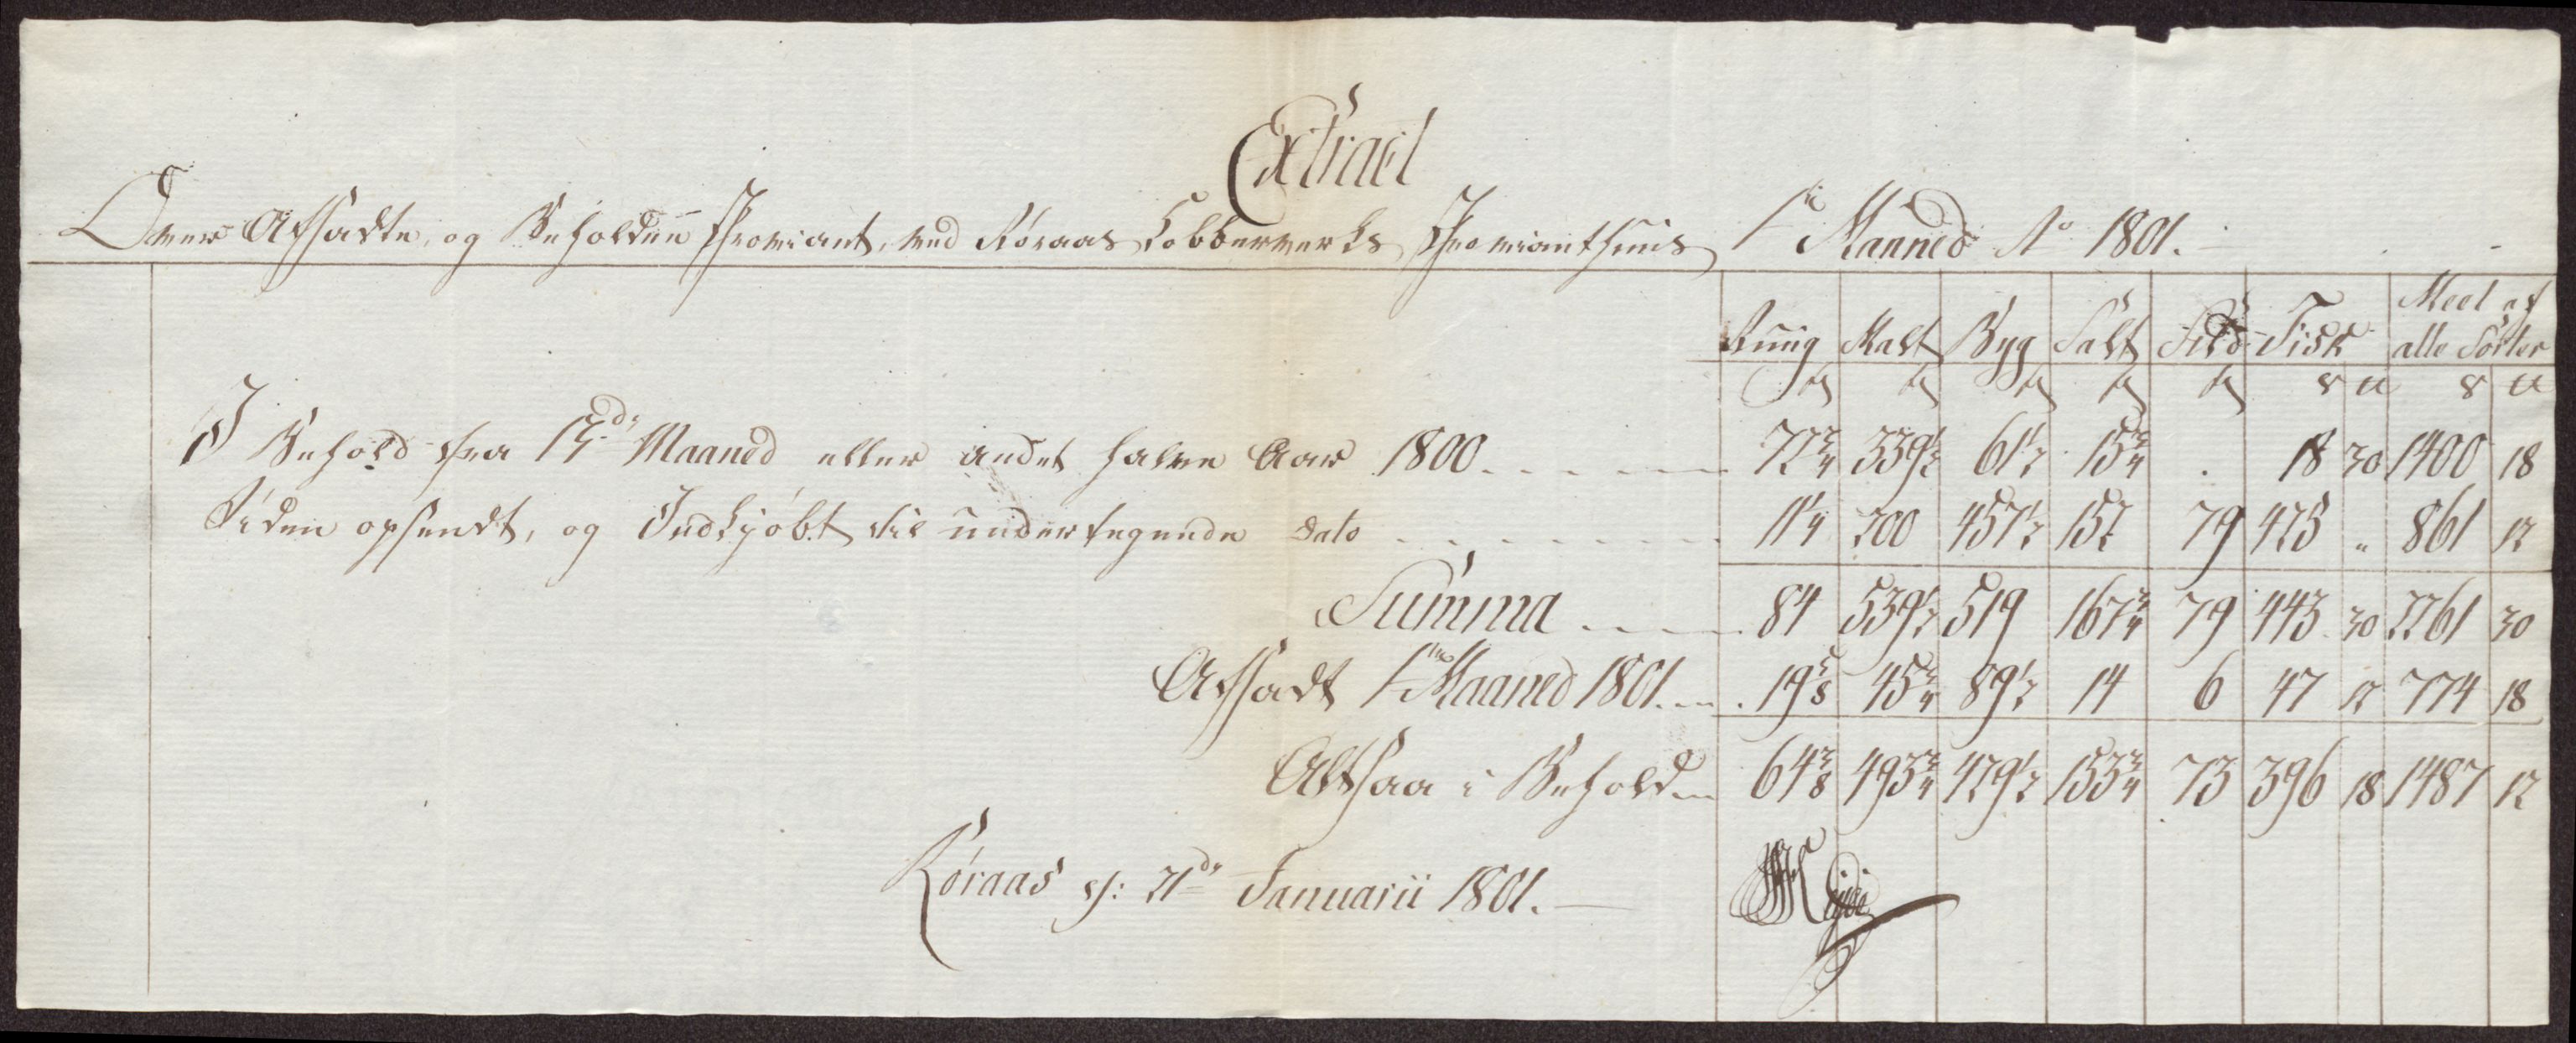 Extract
Over Afsadte, og Beholden Proviant, ved Røraas Kobberverks Provianthuus 1te Maaned Ao 1801.
Ruug Malt Byg Salt Sild Fisk Meel af alle Sorter
I Behold fra 13de Maaned eller andet halve Aar 1800 72 3/4 339 1/2 61 1/2 15 3/4 . 18 30 1400 18
Siden opsendt, og Indkjøbt til undertegnede Dato 11 1/4 200 457 1/2 152 79 425 " 861 12
Summa 84 539 1/2 519 167 3/4 79 443 30 2261 30
Afsadt 1te Maaned 1801. 19 5/8 45 3/4 89 1/2 14 6 47 12 774 18
Altsaa i Behold 64 3/8 493 3/4 429 1/2 153 3/4 73 396 18 1487 12
Røraas d: 21de Januarii 1801.